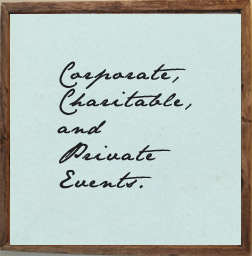 Corporate,
Charitable,
and
Private
Events.